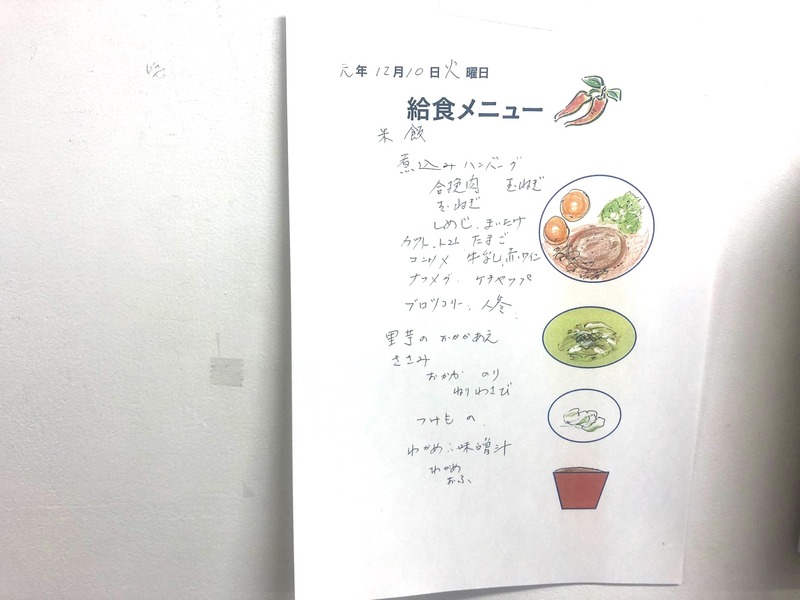 元年12月10日火曜日
給食メニュー
米飯
煮込みハンバーグ
合挽肉 玉ねぎ
玉ねぎ
しめじ、まいたけ
カットトマト たまご
コンソメ 牛乳、赤ワイン
ナツメグ、ケチャップ
ブロッコリー、人参
里芋のおかかあえ
ささみ
おかか のり
ねりわさび
つけもの
わかめ 味噌汁
わかめ
おふ